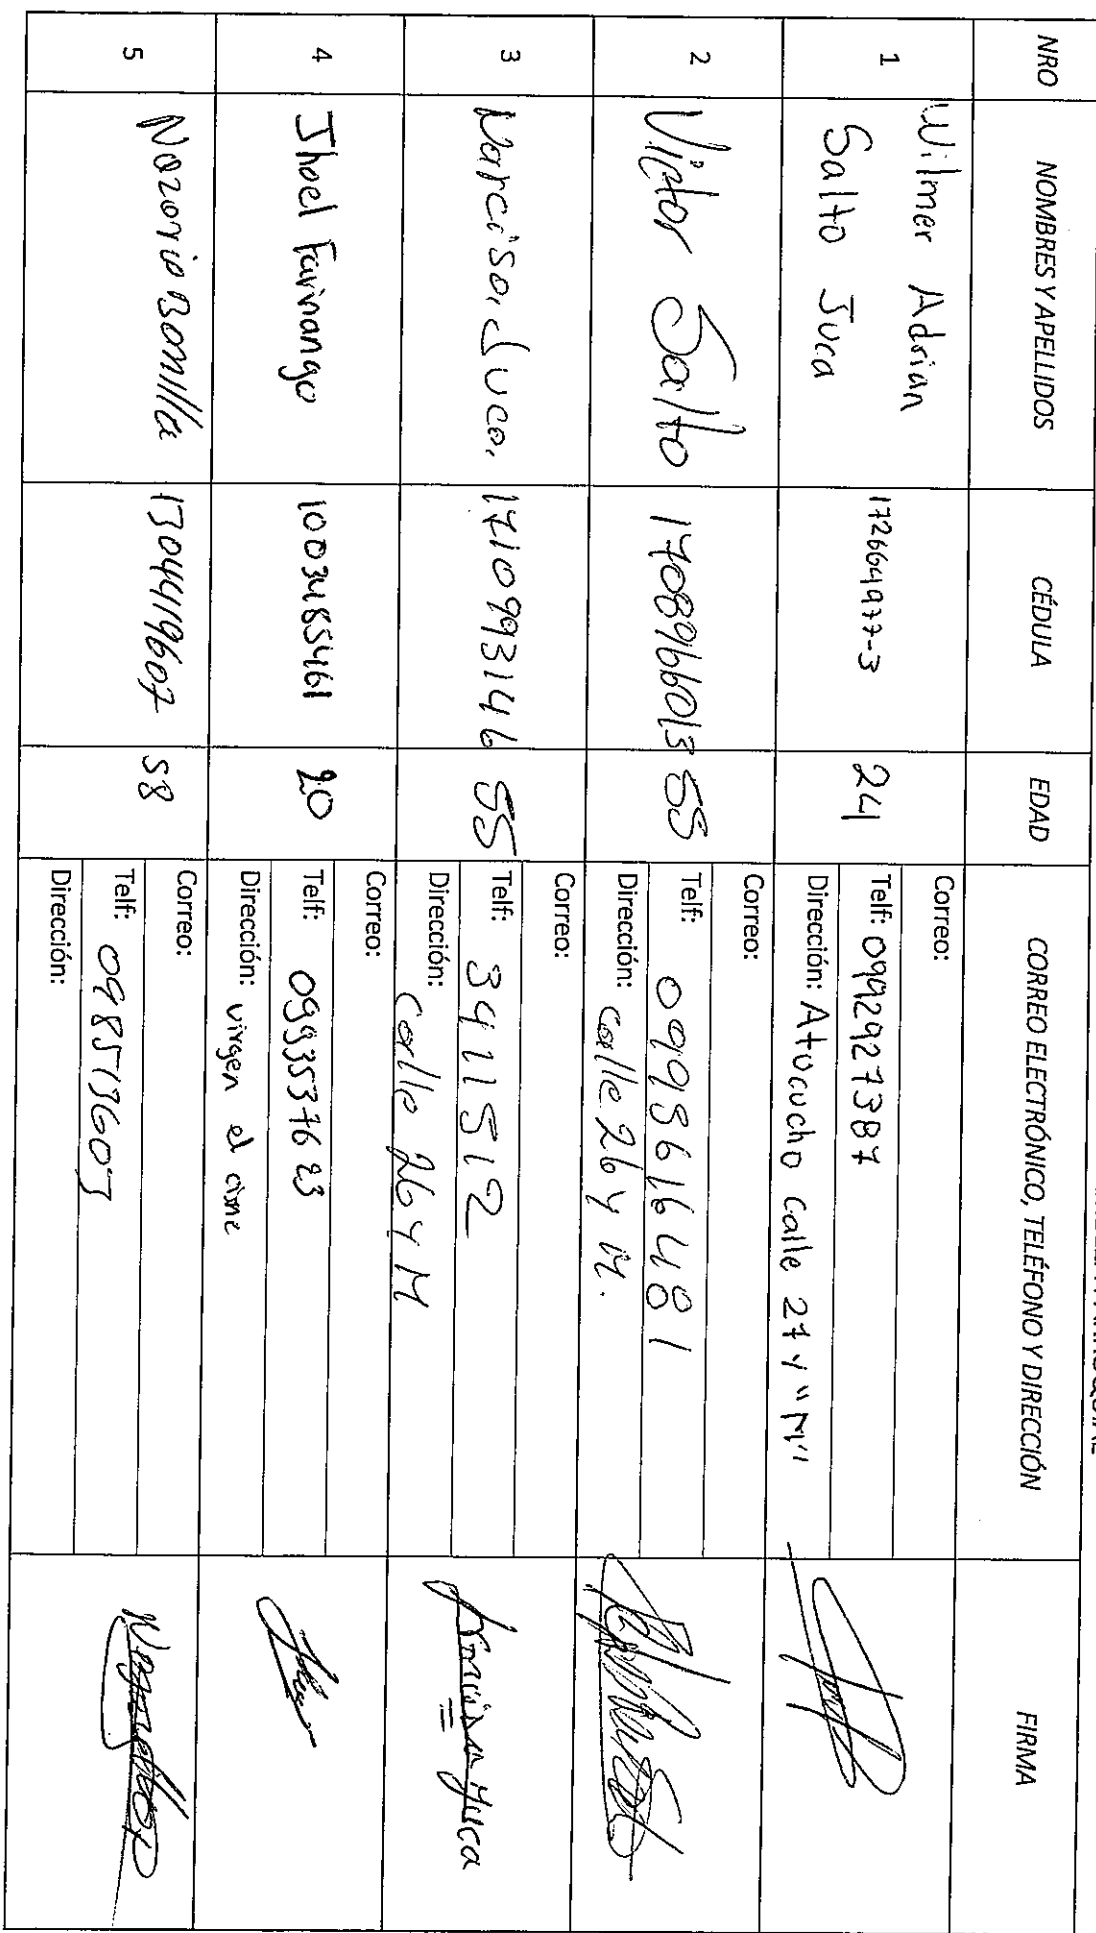 NRO NOMBRES Y APELLIDOS CÉDULA EDAD CORREO ELECTRÓNICO, TELÉFONO Y DIRECCIÓN FIRMA
1
Wilmer Adrian
Salto Juca
172664977-3
24
Correo:
Telf: 0992927387
Dirección: Atucucho Calle 27 y "M"
2
Victor Salto
1708966013
55
Correo:
Telf: 09998616481
Dirección: calle 26 y M.
3
Narcisa Juca
1710993146
55
Correo:
Telf: 3911512
Dirección: Calle 26 y M
4
Jhoel Farinango
1003485461
20
Correo:
Telf: 0993537623
Dirección: virgen el cisne
5
Nazario Bonilla
1304419607
58
Correo:
Telf: 0985173605
Dirección: